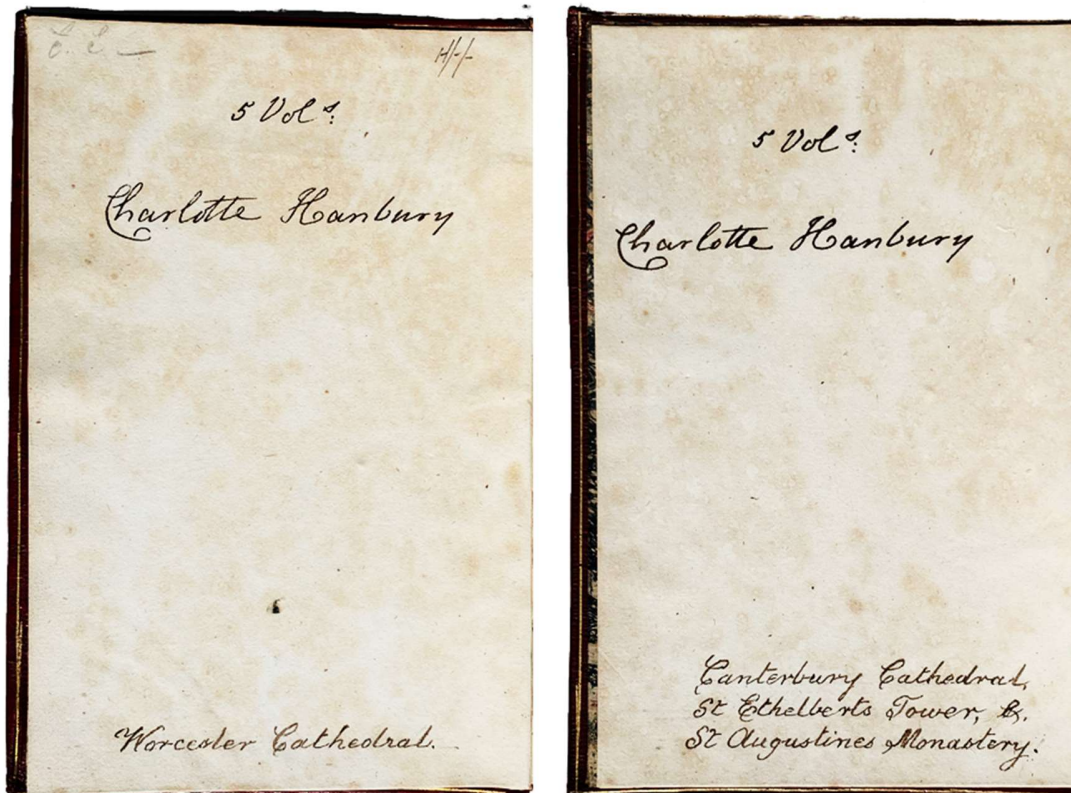 5 Vols:
Charlotte Hanbury
Worcester Cathedral.
5 Vols:
Charlotte Hanbury
Canterbury Cathedral,
St Ethelberts Tower, &.
St Augustines Monastery.